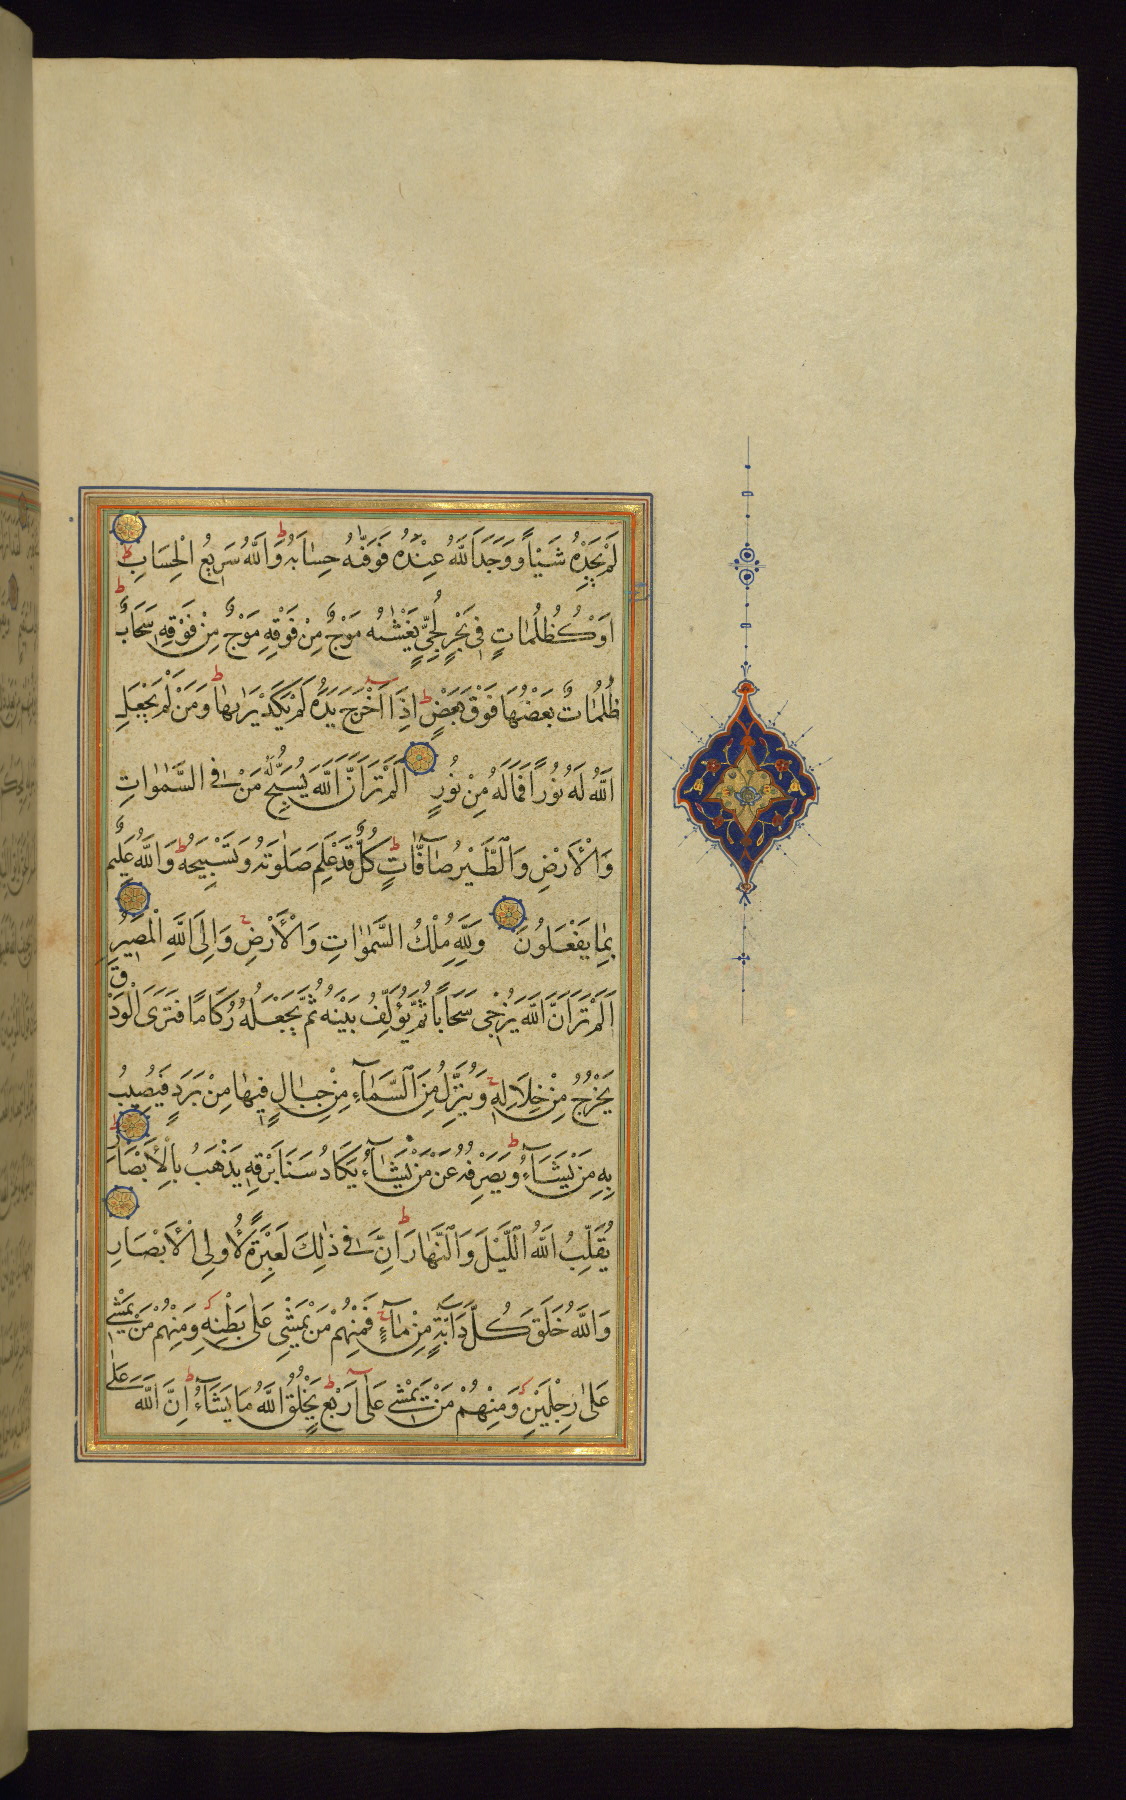 لَمْ يَجِدْهُ شَيْاً وَوَجَدَ اللَّهَ عِنْدَهُ فَوَفّٰهُ حِسَابَهُ ط وَاللَّهُ سَرِيعُ الْحِسَابِ
اَوْ كَظُلُمَاتٍ فِي بَحْرٍ لُجِّيٍّ يَغْشٰىهُ مَوْجٌ مِنْ فَوْقِهِ مَوْجٌ مِنْ فَوْقِهِ سَحَابٌ ط
ظُلُمَاتٌ بَعْضُهَا فَوْقَ بَعْضٍ ط اِذَا اَخْرَجَ يَدَهُ لَمْ يَكَدْ يَرٰىهَا ط وَمَنْ لَمْ يَجْعَلِ
اللّٰهُ لَهُ نُورًا فَمَا لَهُ مِنْ نُورٍ اَلَمْ تَرَ اَنَّ اللّٰهَ يُسَبِّحُ لَهُ مَنْ فِي السَّمٰوٰاتِ
وَالْاَرْضِ وَالطَّيْرُ صَآفَّاتٍ ط كُلٌّ قَدْ عَلِمَ صَلٰوتَهُ وَتَسْبِيحَهُ ط وَاللّٰهُ عَلِيمٌ
بِمَا يَفْعَلُونَ وَلِلّٰهِ مُلْكُ السَّمٰوٰاتِ وَالْاَرْضِ ج وَاِلَى اللّٰهِ الْمَصِيرُ
اَلَمْ تَرَ اَنَّ اللّٰهَ يُزْجِي سَحَابًا ثُمَّ يُؤَلِّفُ بَيْنَهُ ثُمَّ يَجْعَلُهُ رُكَامًا فَتَرَى الْوَدْقَ
يَخْرُجُ مِنْ خِلَالِهِ ج وَيُنَزِّلُ مِنَ السَّمَآءِ مِنْ جِبَالٍ فِيهَا مِنْ بَرَدٍ فَيُصِيبُ
بِهِ مَنْ يَشَآءُ وَيَصْرِفُهُ عَنْ مَنْ يَشَآءُ ط يَكَادُ سَنَا بَرْقِهِ يَذْهَبُ بِالْاَبْصَارِ ط
يُقَلِّبُ اللّٰهُ اللَّيْلَ وَالنَّهَارَ ط اِنَّ فِي ذٰلِكَ لَعِبْرَةً لِاُولِي الْاَبْصَارِ
وَاللّٰهُ خَلَقَ كُلَّ دَآبَّةٍ مِنْ مَآءٍ ج فَمِنْهُمْ مَنْ يَمْشِي عَلٰى بَطْنِهِ وَمِنْهُمْ مَنْ يَمْشِي
عَلٰى رِجْلَيْنِ وَمِنْهُمْ مَنْ يَمْشِي عَلٰى اَرْبَعٍ ط يَخْلُقُ اللّٰهُ مَا يَشَآءُ ط اِنَّ اللّٰهَ عَلٰى